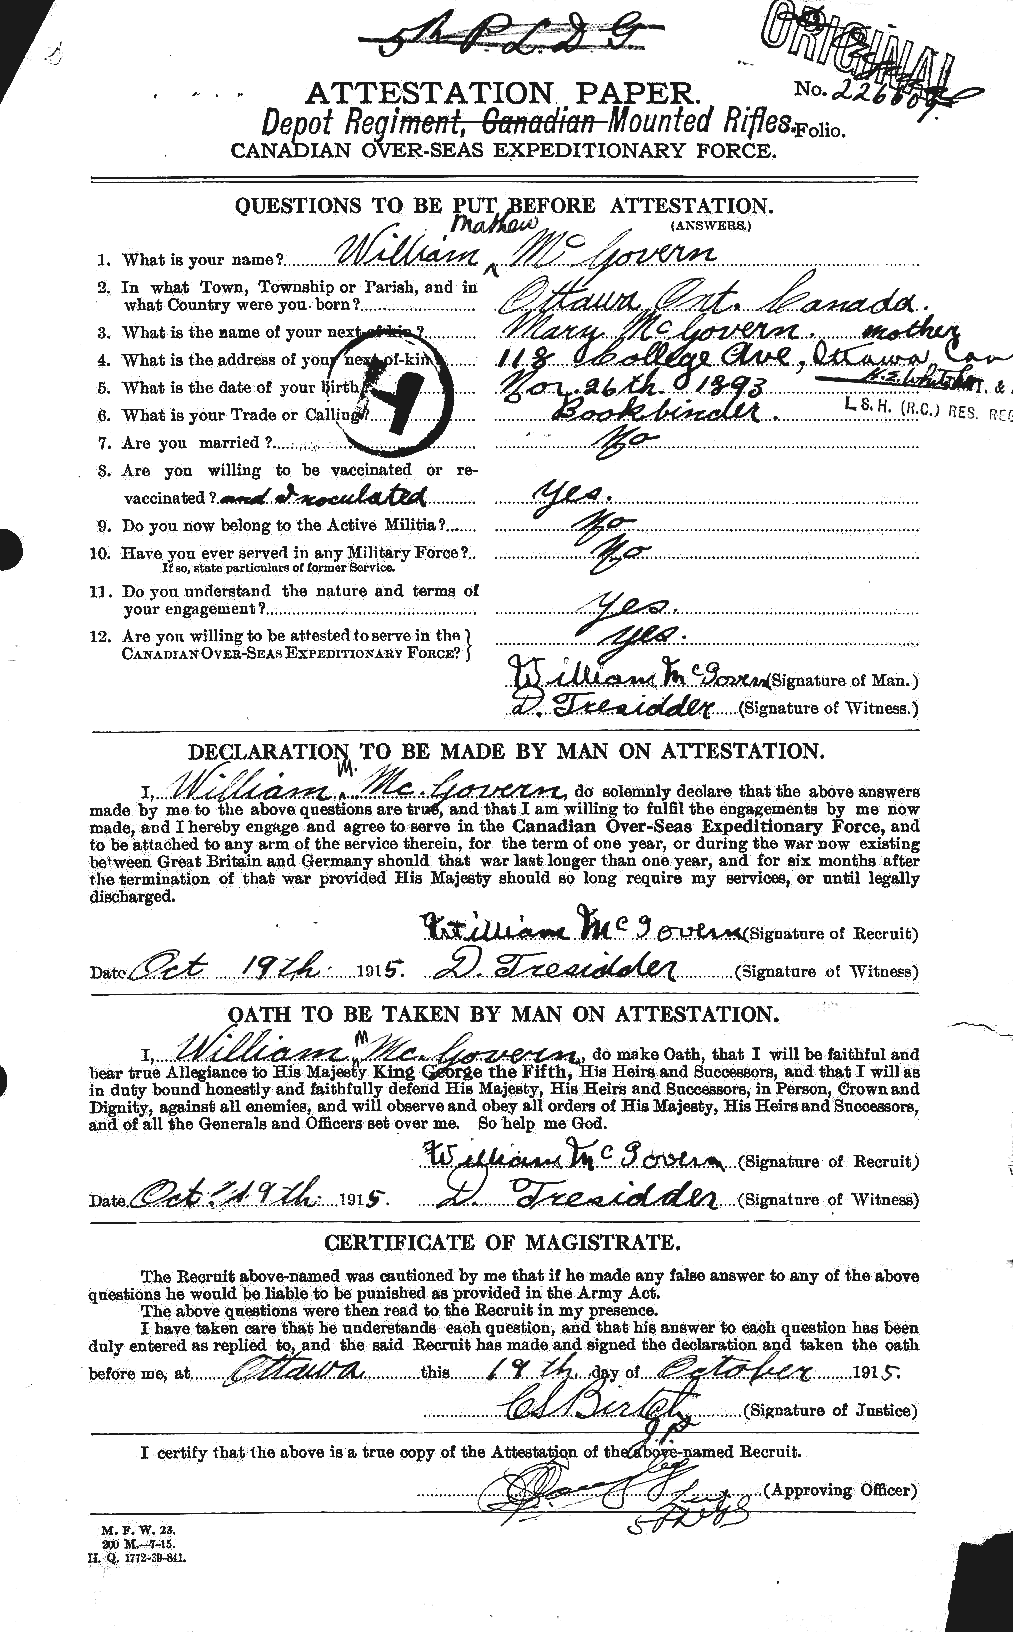 5th P.L.D.G.
ORIGINAL
ATTESTATION PAPER.
No.
Depot Regiment, Canadian Mounted Rifles.
Folio.
CANADIAN OVER-SEAS EXPEDITIONARY FORCE.
QUESTIONS TO BE PUT BEFORE ATTESTATION.
(ANSWERS.)
Mathew
1. What is your name? William ^ McGovern
2. In what Town, Township or Parish, and in
what Country were you born? Ottawa, Ont. Canada.
3. What is the name of your next-of-kin? Mary McGovern. mother
4. What is the address of your next-of-kin? 118 College Ave, Ottawa, Can
5. What is the date of your birth? Nov. 26th 1893
4
6. What is your Trade or Calling? Bookbinder.
L.S.H. (R.C.) RES. REG
7. Are you married? No
8. Are you willing to be vaccinated or re-
vaccinated? and Inoculated Yes.
9. Do you now belong to the Active Militia? No
10. Have you ever served in any Military Force? No
If so, state particulars of former Service.
11. Do you understand the nature and terms of
your engagement? Yes.
12. Are you willing to be attested to serve in the
CANADIAN OVER-SEAS EXPEDITIONARY FORCE? Yes.
William McGovern (Signature of Man.)
D. Tresidder (Signature of Witness.)
DECLARATION TO BE MADE BY MAN ON ATTESTATION.
M.
I, William ^ McGovern, do solemnly declare that the above answers
made by me to the above questions are true, and that I am willing to fulfil the engagements by me now
made, and I hereby engage and agree to serve in the Canadian Over-Seas Expeditionary Force, and
to be attached to any arm of the service therein, for the term of one year, or during the war now existing
between Great Britain and Germany should that war last longer than one year, and for six months after
the termination of that war provided His Majesty should so long require my services, or until legally
discharged.
William McGovern (Signature of Recruit)
Date Oct 19th 1915. D. Tresidder (Signature of Witness)
OATH TO BE TAKEN BY MAN ON ATTESTATION.
M
I, William ^ McGovern, do make Oath, that I will be faithful and
bear true Allegiance to His Majesty King George the Fifth, His Heirs and Successors, and that I will as
in duty bound honestly and faithfully defend His Majesty, His Heirs and Successors, in Person, Crown and
Dignity, against all enemies, and will observe and obey all orders of His Majesty, His Heirs and Successors,
and of all the Generals and Officers set over me. So help me God.
William McGovern (Signature of Recruit)
Date Oct. 19th 1915. D. Tresidder (Signature of Witness)
CERTIFICATE OF MAGISTRATE.
The Recruit above-named was cautioned by me that if he made any false answer to any of the above
questions he would be liable to be punished as provided in the Army Act.
The above questions were then read to the Recruit in my presence.
I have taken care that he understands each question, and that his answer to each question has been
duly entered as replied to, and the said Recruit has made and signed the declaration and taken the oath
before me, at Ottawa this 19th day of October 1915.
(Signature of Justice)
J.P.
I certify that the above is a true copy of the Attestation of the above-named Recruit.
(Approving Officer)
M. F. W. 23.
200 M.-7-15.
H. Q. 1772-39-841.